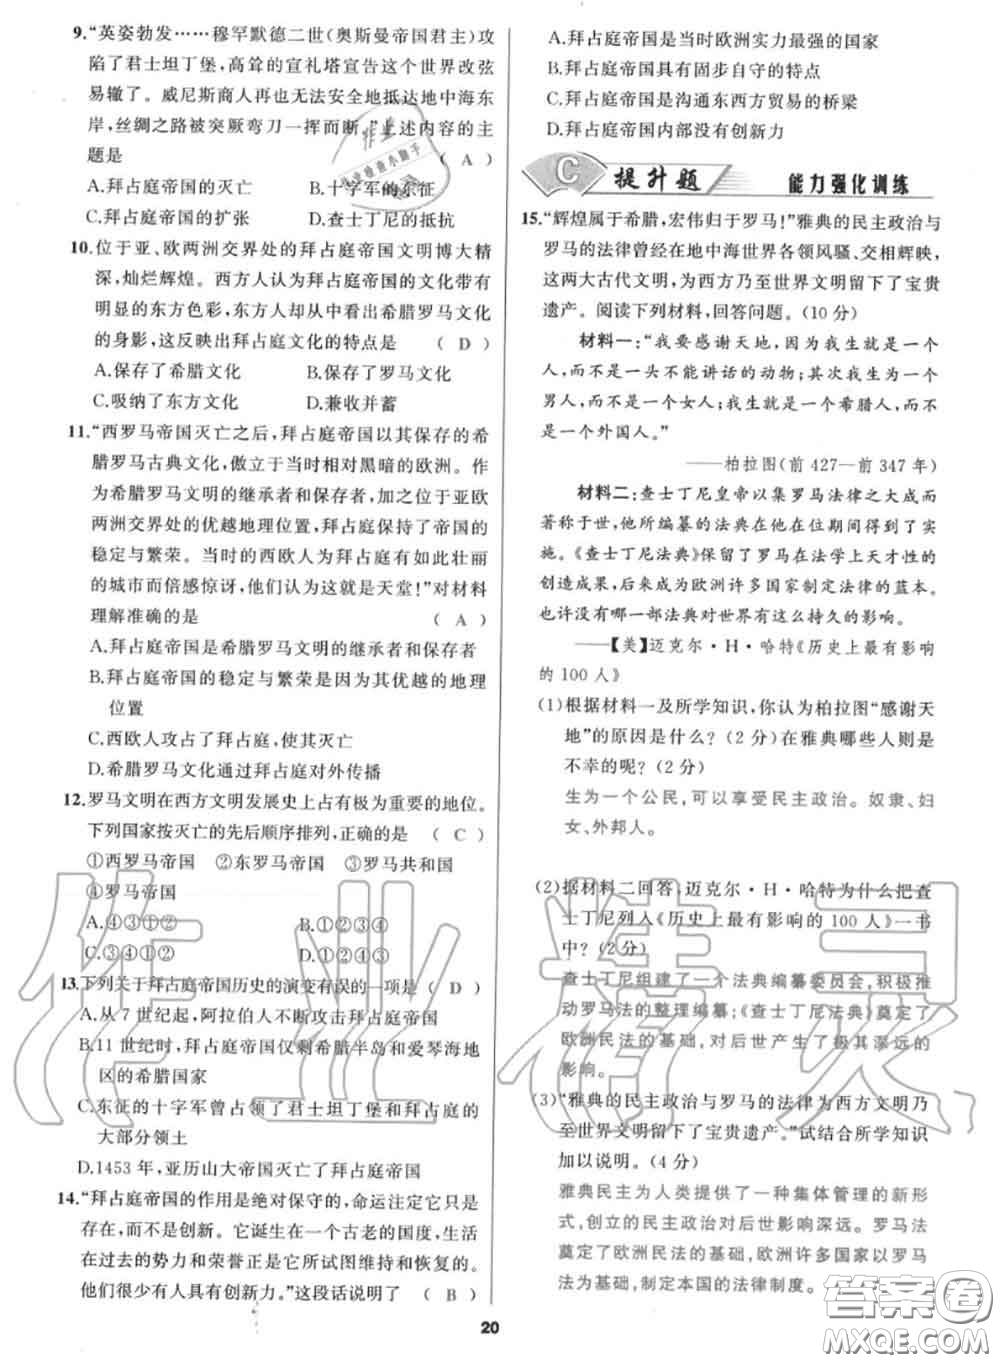 9.“英姿勃发……穆罕默德二世(奥斯曼帝国君主)攻
陷了君士坦丁堡，高耸的宣礼塔宣告这个世界改弦
易辙了。威尼斯商人再也无法安全地抵达地中海东
岸，丝绸之路被突厥弯刀一挥而断。”上述内容的主
题是 ( A )
A.拜占庭帝国的灭亡 B.十字军的东征
C.拜占庭帝国的扩张 D.查士丁尼的抵抗
10.位于亚、欧两洲交界处的拜占庭帝国文明博大精
深，灿烂辉煌。西方人认为拜占庭帝国的文化带有
明显的东方色彩，东方人却从中看出希腊罗马文化
的身影，这反映出拜占庭文化的特点是 ( D )
A.保存了希腊文化 B.保存了罗马文化
C.吸纳了东方文化 D.兼收并蓄
11.“西罗马帝国灭亡之后，拜占庭帝国以其保存的希
腊罗马古典文化，傲立于当时相对黑暗的欧洲。作
为希腊罗马文明的继承者和保存者，加之位于亚欧
两洲交界处的优越地理位置，拜占庭保持了帝国的
稳定与繁荣。当时的西欧人为拜占庭有如此壮丽
的城市而倍感惊讶，他们认为这是天堂！”对材料
理解准确的是 ( A )
A.拜占庭帝国是希腊罗马文明的继承者和保存者
B.拜占庭帝国的稳定与繁荣是因为其优越的地理
位置
C.西欧人攻占了拜占庭，使其灭亡
D.希腊罗马文化通过拜占庭对外传播
12.罗马文明在西方文明发展史上占有极为重要的地位。
下列国家按灭亡的先后顺序排列，正确的是 ( C )
①西罗马帝国 ②东罗马帝国 ③罗马共和国
④罗马帝国
A.④③①② B.①②③④
C.③④①② D.①②④③
13.下列关于拜占庭帝国历史的演变有误的一项是 ( D )
A.从 7 世纪起，阿拉伯人不断攻击拜占庭帝国
B.11 世纪时，拜占庭帝国仅剩希腊半岛和爱琴海地
区的希腊国家
C.东征的十字军曾占领了君士坦丁堡和拜占庭的
大部分领土
D.1453 年，亚历山大帝国灭亡了拜占庭帝国
14.“拜占庭帝国的作用是绝对保守的，命运注定它只是
存在，而不是创新。它诞生在一个古老的国度，生活
在过去的势力和荣誉正是它所试图维持和恢复的。
他们很少有人具有创新力。”这段话说明了 ( B )
A.拜占庭帝国是当时欧洲实力最强的国家
B.拜占庭帝国具有固步自守的特点
C.拜占庭帝国是沟通东西方贸易的桥梁
D.拜占庭帝国内部没有创新力
C 提升题 能力强化训练
15.“辉煌属于希腊，宏伟归于罗马！”雅典的民主政治与
罗马的法律曾经在地中海世界各领风骚、交相辉映，
这两大古代文明，为西方乃至世界文明留下了宝贵
遗产。阅读下列材料，回答问题。(10 分)
材料一：“我要感谢天地，因为我生就是一个
人，而不是一头不能讲话的动物；其次我生为一个
男人，而不是一个女人；我生就是一个希腊人，而不
是一个外国人。”
——柏拉图(前 427—前 347 年)
材料二：查士丁尼皇帝以集罗马法律之大成而
著称于世，他所编纂的法典在他在位期间得到了实
施。《查士丁尼法典》保留了罗马在法学上天才性的
创造成果，后来成为欧洲许多国家制定法律的蓝本。
也许没有哪一部法典对世界有这么持久的影响。
——【美】迈克尔·H·哈特《历史上最有影响的
的 100 人》
(1)根据材料一及所学知识，你认为柏拉图“感谢天
地”的原因是什么？(2 分)在雅典哪些人则是
不幸的呢？(2 分)
生为一个公民，可以享受民主政治。奴隶、妇
女、外邦人。
(2)据材料二回答，迈克尔·H·哈特为什么把查
士丁尼列入《历史上最有影响的 100 人》一书
中？(2 分)
查士丁尼组建了一个法典编纂委员会，积极推
动罗马法的整理编纂；《查士丁尼法典》奠定了
欧洲民法的基础，对后世产生了极其深远的
影响。
(3)“雅典的民主政治与罗马的法律为西方文明乃
至世界文明留下了宝贵遗产。”试结合所学知识
加以说明。(4 分)
雅典民主为人类提供了一种集体管理的新形
式，创立的民主政治对后世影响深远。罗马法
奠定了欧洲民法的基础，欧洲许多国家以罗马
法为基础，制定本国的法律制度。
20
作业精灵
答案圈
MXQE.COM